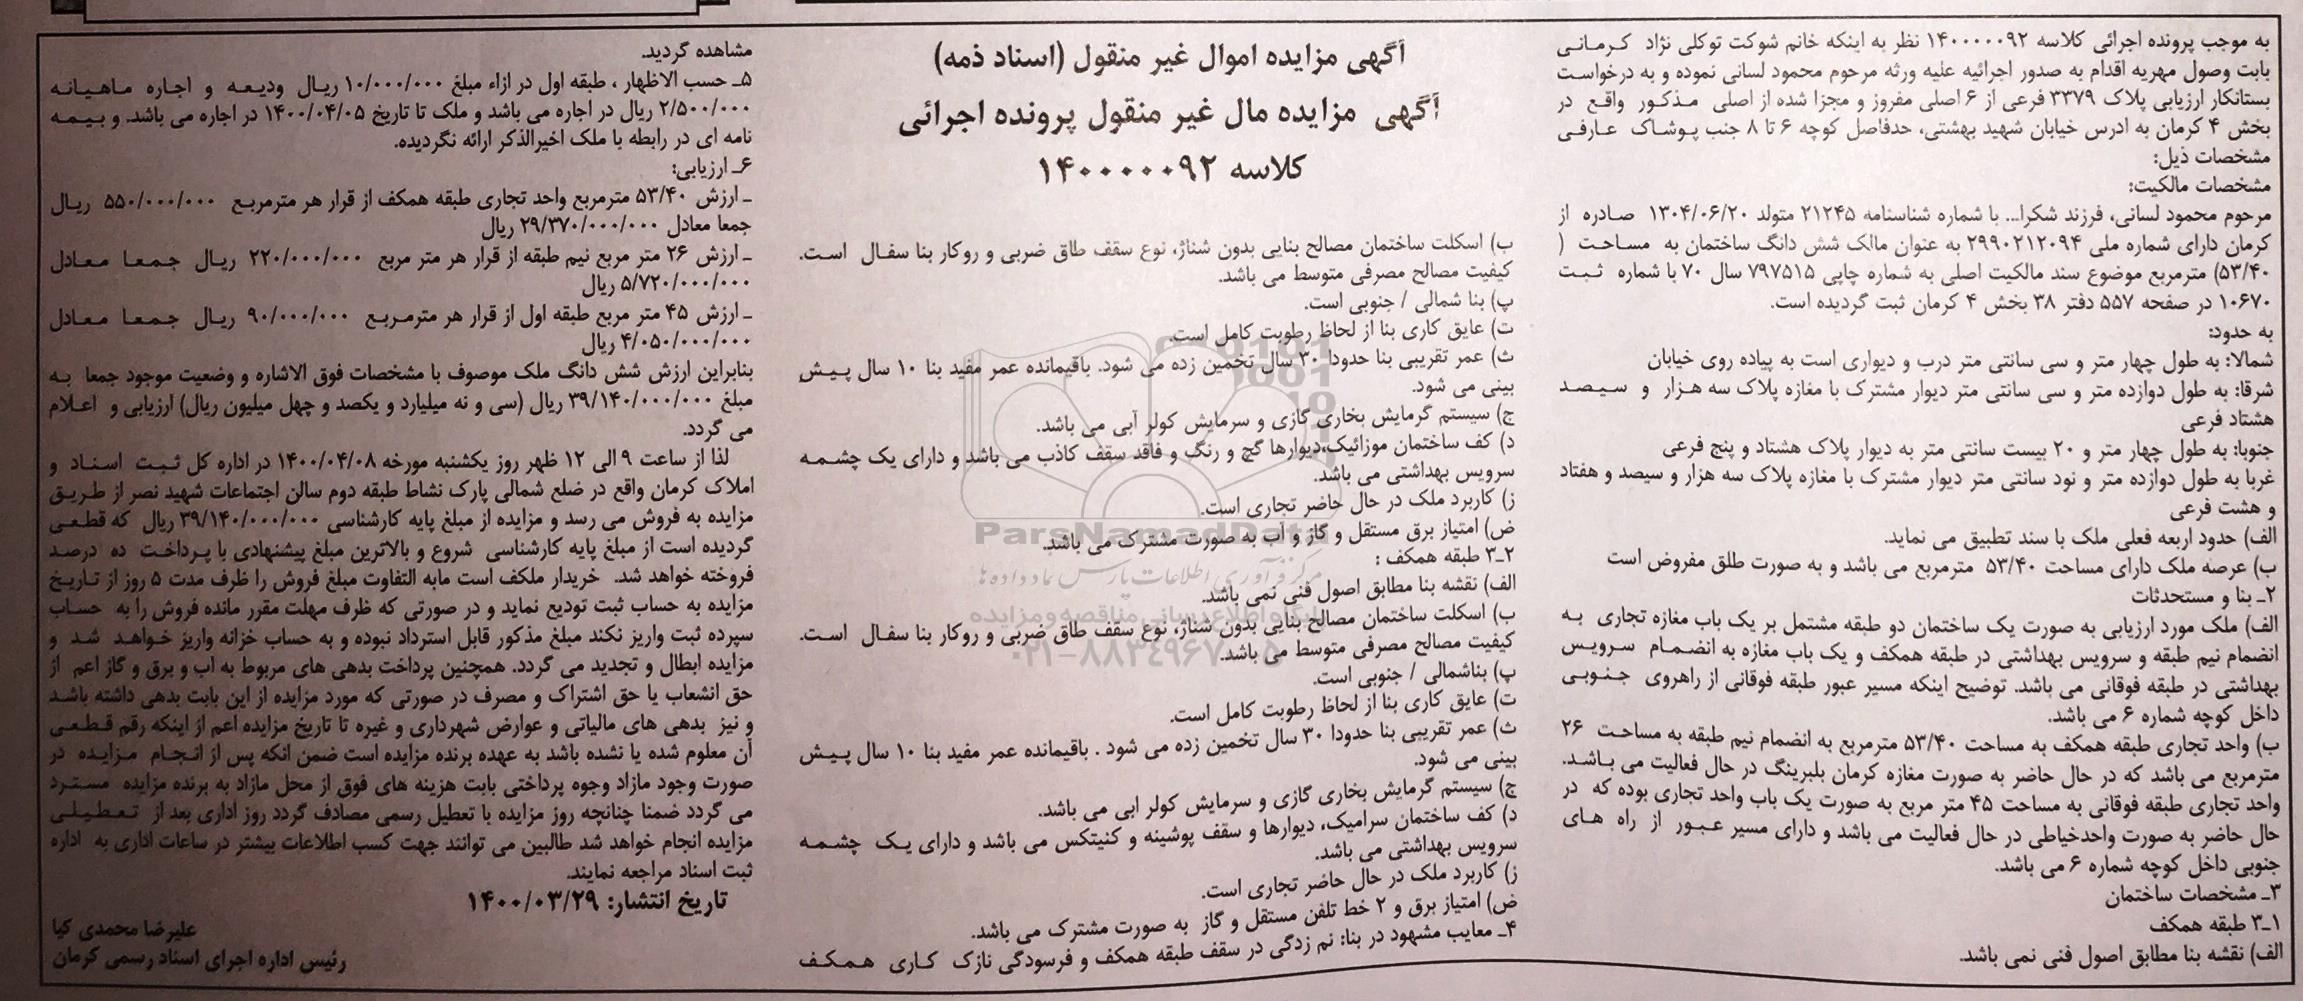 آگهی مزایده اموال غیر منقول (اسناد ذمه)
آگهی مزایده مال غیر منقول پرونده اجرائی
کلاسه ۱۴۰۰۰۰۰۹۲
به موجب پرونده اجرائی کلاسه ۱۴۰۰۰۰۰۹۲ نظر به اینکه خانم شوکت توکلی نژاد کرمانی
بابت وصول مهریه اقدام به صدور اجرائیه علیه ورثه مرحوم محمود لسانی نموده و به درخواست
بستانکار ارزیابی پلاک ۳۳۷۹ فرعی از ۶ اصلی مفروز و مجزا شده از اصلی مذکور واقع در
بخش ۴ کرمان به ادرس خیابان شهید بهشتی، حدفاصل کوچه ۶ تا ۸ جنب پوشاک عارفی
مشخصات ذیل:
مشخصات مالکیت:
مرحوم محمود لسانی، فرزند شکرا... با شماره شناسنامه ۲۱۲۴۵ متولد ۱۳۰۴/۰۶/۲۰ صادره از
کرمان دارای شماره ملی ۲۹۹۰۲۱۲۰۹۴ به عنوان مالک شش دانگ ساختمان به مساحت (
۵۳/۴۰) مترمربع موضوع سند مالکیت اصلی به شماره چاپی ۷۹۷۵۱۵ سال ۷۰ با شماره ثبت
۱۰۶۷۰ در صفحه ۵۵۷ دفتر ۳۸ بخش ۴ کرمان ثبت گردیده است.
به حدود:
شمالا: به طول چهار متر و سی سانتی متر درب و دیواری است به پیاده روی خیابان
شرقا: به طول دوازده متر و سی سانتی متر دیوار مشترک با مغازه پلاک سه هزار و سیصد
هشتاد فرعی
جنوبا: به طول چهار متر و ۲۰ بیست سانتی متر به دیوار پلاک هشتاد و پنج فرعی
غربا به طول دوازده متر و نود سانتی متر دیوار مشترک با مغازه پلاک سه هزار و سیصد و هفتاد
و هشت فرعی
الف) حدود اربعه فعلی ملک با سند تطبیق می نماید.
ب) عرصه ملک دارای مساحت ۵۳/۴۰ مترمربع می باشد و به صورت طلق مفروض است
۲ـ بنا و مستحدثات
الف) ملک مورد ارزیابی به صورت یک ساختمان دو طبقه مشتمل بر یک باب مغازه تجاری به
انضمام نیم طبقه و سرویس بهداشتی در طبقه همکف و یک باب مغازه به انضمام سرویس
بهداشتی در طبقه فوقانی می باشد. توضیح اینکه مسیر عبور طبقه فوقانی از راهروی جنوبی
داخل کوچه شماره ۶ می باشد.
ب) واحد تجاری طبقه همکف به مساحت ۵۳/۴۰ مترمربع به انضمام نیم طبقه به مساحت ۲۶
مترمربع می باشد که در حال حاضر به صورت مغازه کرمان بلبرینگ در حال فعالیت می باشد.
واحد تجاری طبقه فوقانی به مساحت ۴۵ متر مربع به صورت یک باب واحد تجاری بوده که در
حال حاضر به صورت واحدخیاطی در حال فعالیت می باشد و دارای مسیر عبور از راه های
جنوبی داخل کوچه شماره ۶ می باشد.
۳ـ مشخصات ساختمان
۳ـ۱ طبقه همکف
الف) نقشه بنا مطابق اصول فنی نمی باشد.
ب) اسکلت ساختمان مصالح بنایی بدون شناژ، نوع سقف طاق ضربی و روکار بنا سفال است.
کیفیت مصالح مصرفی متوسط می باشد.
پ) بنا شمالی / جنوبی است.
ت) عایق کاری بنا از لحاظ رطوبت کامل است.
ث) عمر تقریبی بنا حدودا ۳۰ سال تخمین زده می شود. باقیمانده عمر مفید بنا ۱۰ سال پیش
بینی می شود.
ج) سیستم گرمایش بخاری گازی و سرمایش کولر آبی می باشد.
د) کف ساختمان موزائیک،دیوارها گچ و رنگ و فاقد سقف کاذب می باشد و دارای یک چشمه
سرویس بهداشتی می باشد.
ز) کاربرد ملک در حال حاضر تجاری است.
ض) امتیاز برق مستقل و گاز و آب به صورت مشترک می باشد.
۳ـ۲ طبقه همکف :
الف) نقشه بنا مطابق اصول فنی نمی باشد.
ب) اسکلت ساختمان مصالح بنایی بدون شناژ، نوع سقف طاق ضربی و روکار بنا سفال است.
کیفیت مصالح مصرفی متوسط می باشد.
پ) بناشمالی / جنوبی است.
ت) عایق کاری بنا از لحاظ رطوبت کامل است.
ث) عمر تقریبی بنا حدودا ۳۰ سال تخمین زده می شود . باقیمانده عمر مفید بنا ۱۰ سال پیش
بینی می شود.
ج) سیستم گرمایش بخاری گازی و سرمایش کولر ابی می باشد.
د) کف ساختمان سرامیک، دیوارها و سقف پوشینه و کنیتکس می باشد و دارای یک چشمه
سرویس بهداشتی می باشد.
ز) کاربرد ملک در حال حاضر تجاری است.
ض) امتیاز برق و ۲ خط تلفن مستقل و گاز به صورت مشترک می باشد.
۴ـ معایب مشهود در بنا: نم زدگی در سقف طبقه همکف و فرسودگی نازک کاری همکف
مشاهده گردید.
۵ـ حسب الاظهار ، طبقه اول در ازاء مبلغ ۱۰/۰۰۰/۰۰۰ ریال ودیعه و اجاره ماهیانه
۲/۵۰۰/۰۰۰ ریال در اجاره می باشد و ملک تا تاریخ ۱۴۰۰/۰۴/۰۵ در اجاره می باشد. و بیمه
نامه ای در رابطه با ملک اخیرالذکر ارائه نگردیده.
۶ـ ارزیابی:
ـ ارزش ۵۳/۴۰ مترمربع واحد تجاری طبقه همکف از قرار هر مترمربع ۵۵۰/۰۰۰/۰۰۰ ریال
جمعا معادل ۲۹/۳۷۰/۰۰۰/۰۰۰ ریال
ـ ارزش ۲۶ متر مربع نیم طبقه از قرار هر متر مربع ۲۲۰/۰۰۰/۰۰۰ ریال جمعا معادل
۵/۷۲۰/۰۰۰/۰۰۰ ریال
ـ ارزش ۴۵ متر مربع طبقه اول از قرار هر مترمربع ۹۰/۰۰۰/۰۰۰ ریال جمعا معادل
۴/۰۵۰/۰۰۰/۰۰۰ ریال
بنابراین ارزش شش دانگ ملک موصوف با مشخصات فوق الاشاره و وضعیت موجود جمعا به
مبلغ ۳۹/۱۴۰/۰۰۰/۰۰۰ ریال (سی و نه میلیارد و یکصد و چهل میلیون ریال) ارزیابی و اعلام
می گردد.
لذا از ساعت ۹ الی ۱۲ ظهر روز یکشنبه مورخه ۱۴۰۰/۰۴/۰۸ در اداره کل ثبت اسناد و
املاک کرمان واقع در ضلع شمالی پارک نشاط طبقه دوم سالن اجتماعات شهید نصر از طریق
مزایده به فروش می رسد و مزایده از مبلغ پایه کارشناسی ۳۹/۱۴۰/۰۰۰/۰۰۰ ریال که قطعی
گردیده است از مبلغ پایه کارشناسی شروع و بالاترین مبلغ پیشنهادی با پرداخت ده درصد
فروخته خواهد شد. خریدار ملکف است مابه التفاوت مبلغ فروش را ظرف مدت ۵ روز از تاریخ
مزایده به حساب ثبت تودیع نماید و در صورتی که ظرف مهلت مقرر مانده فروش را به حساب
سپرده ثبت واریز نکند مبلغ مذکور قابل استرداد نبوده و به حساب خزانه واریز خواهد شد و
مزایده ابطال و تجدید می گردد. همچنین پرداخت بدهی های مربوط به آب و برق و گاز اعم از
حق انشعاب یا حق اشتراک و مصرف در صورتی که مورد مزایده از این بابت بدهی داشته باشد
و نیز بدهی های مالیاتی و عوارض شهرداری و غیره تا تاریخ مزایده اعم از اینکه رقم قطعی
آن معلوم شده یا نشده باشد به عهده برنده مزایده است ضمن انکه پس از انجام مزایده در
صورت وجود مازاد وجوه پرداختی بابت هزینه های فوق از محل مازاد به برنده مزایده مسترد
می گردد ضمنا چنانچه روز مزایده با تعطیل رسمی مصادف گردد روز اداری بعد از تعطیلی
مزایده انجام خواهد شد طالبین می توانند جهت کسب اطلاعات بیشتر در ساعات اداری به اداره
ثبت اسناد مراجعه نمایند.
تاریخ انتشار: ۱۴۰۰/۰۳/۲۹
علیرضا محمدی کیا
رئیس اداره اجرای اسناد رسمی کرمان
ParsNamadData
مرکز فرآوری اطلاعات پارس نماد داده ها
پایگاه اطلاع رسانی مناقصه و مزایده